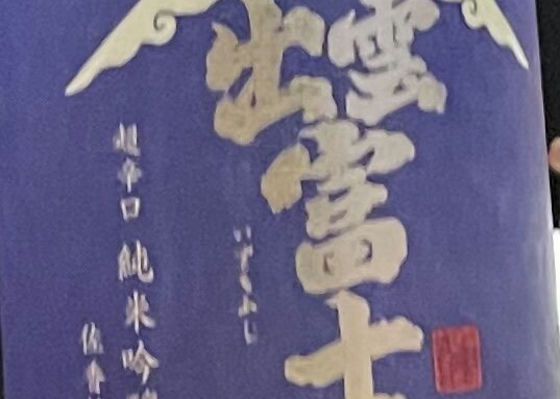 出雲富士
いずもふじ
超辛口 純米吟醸
佐香